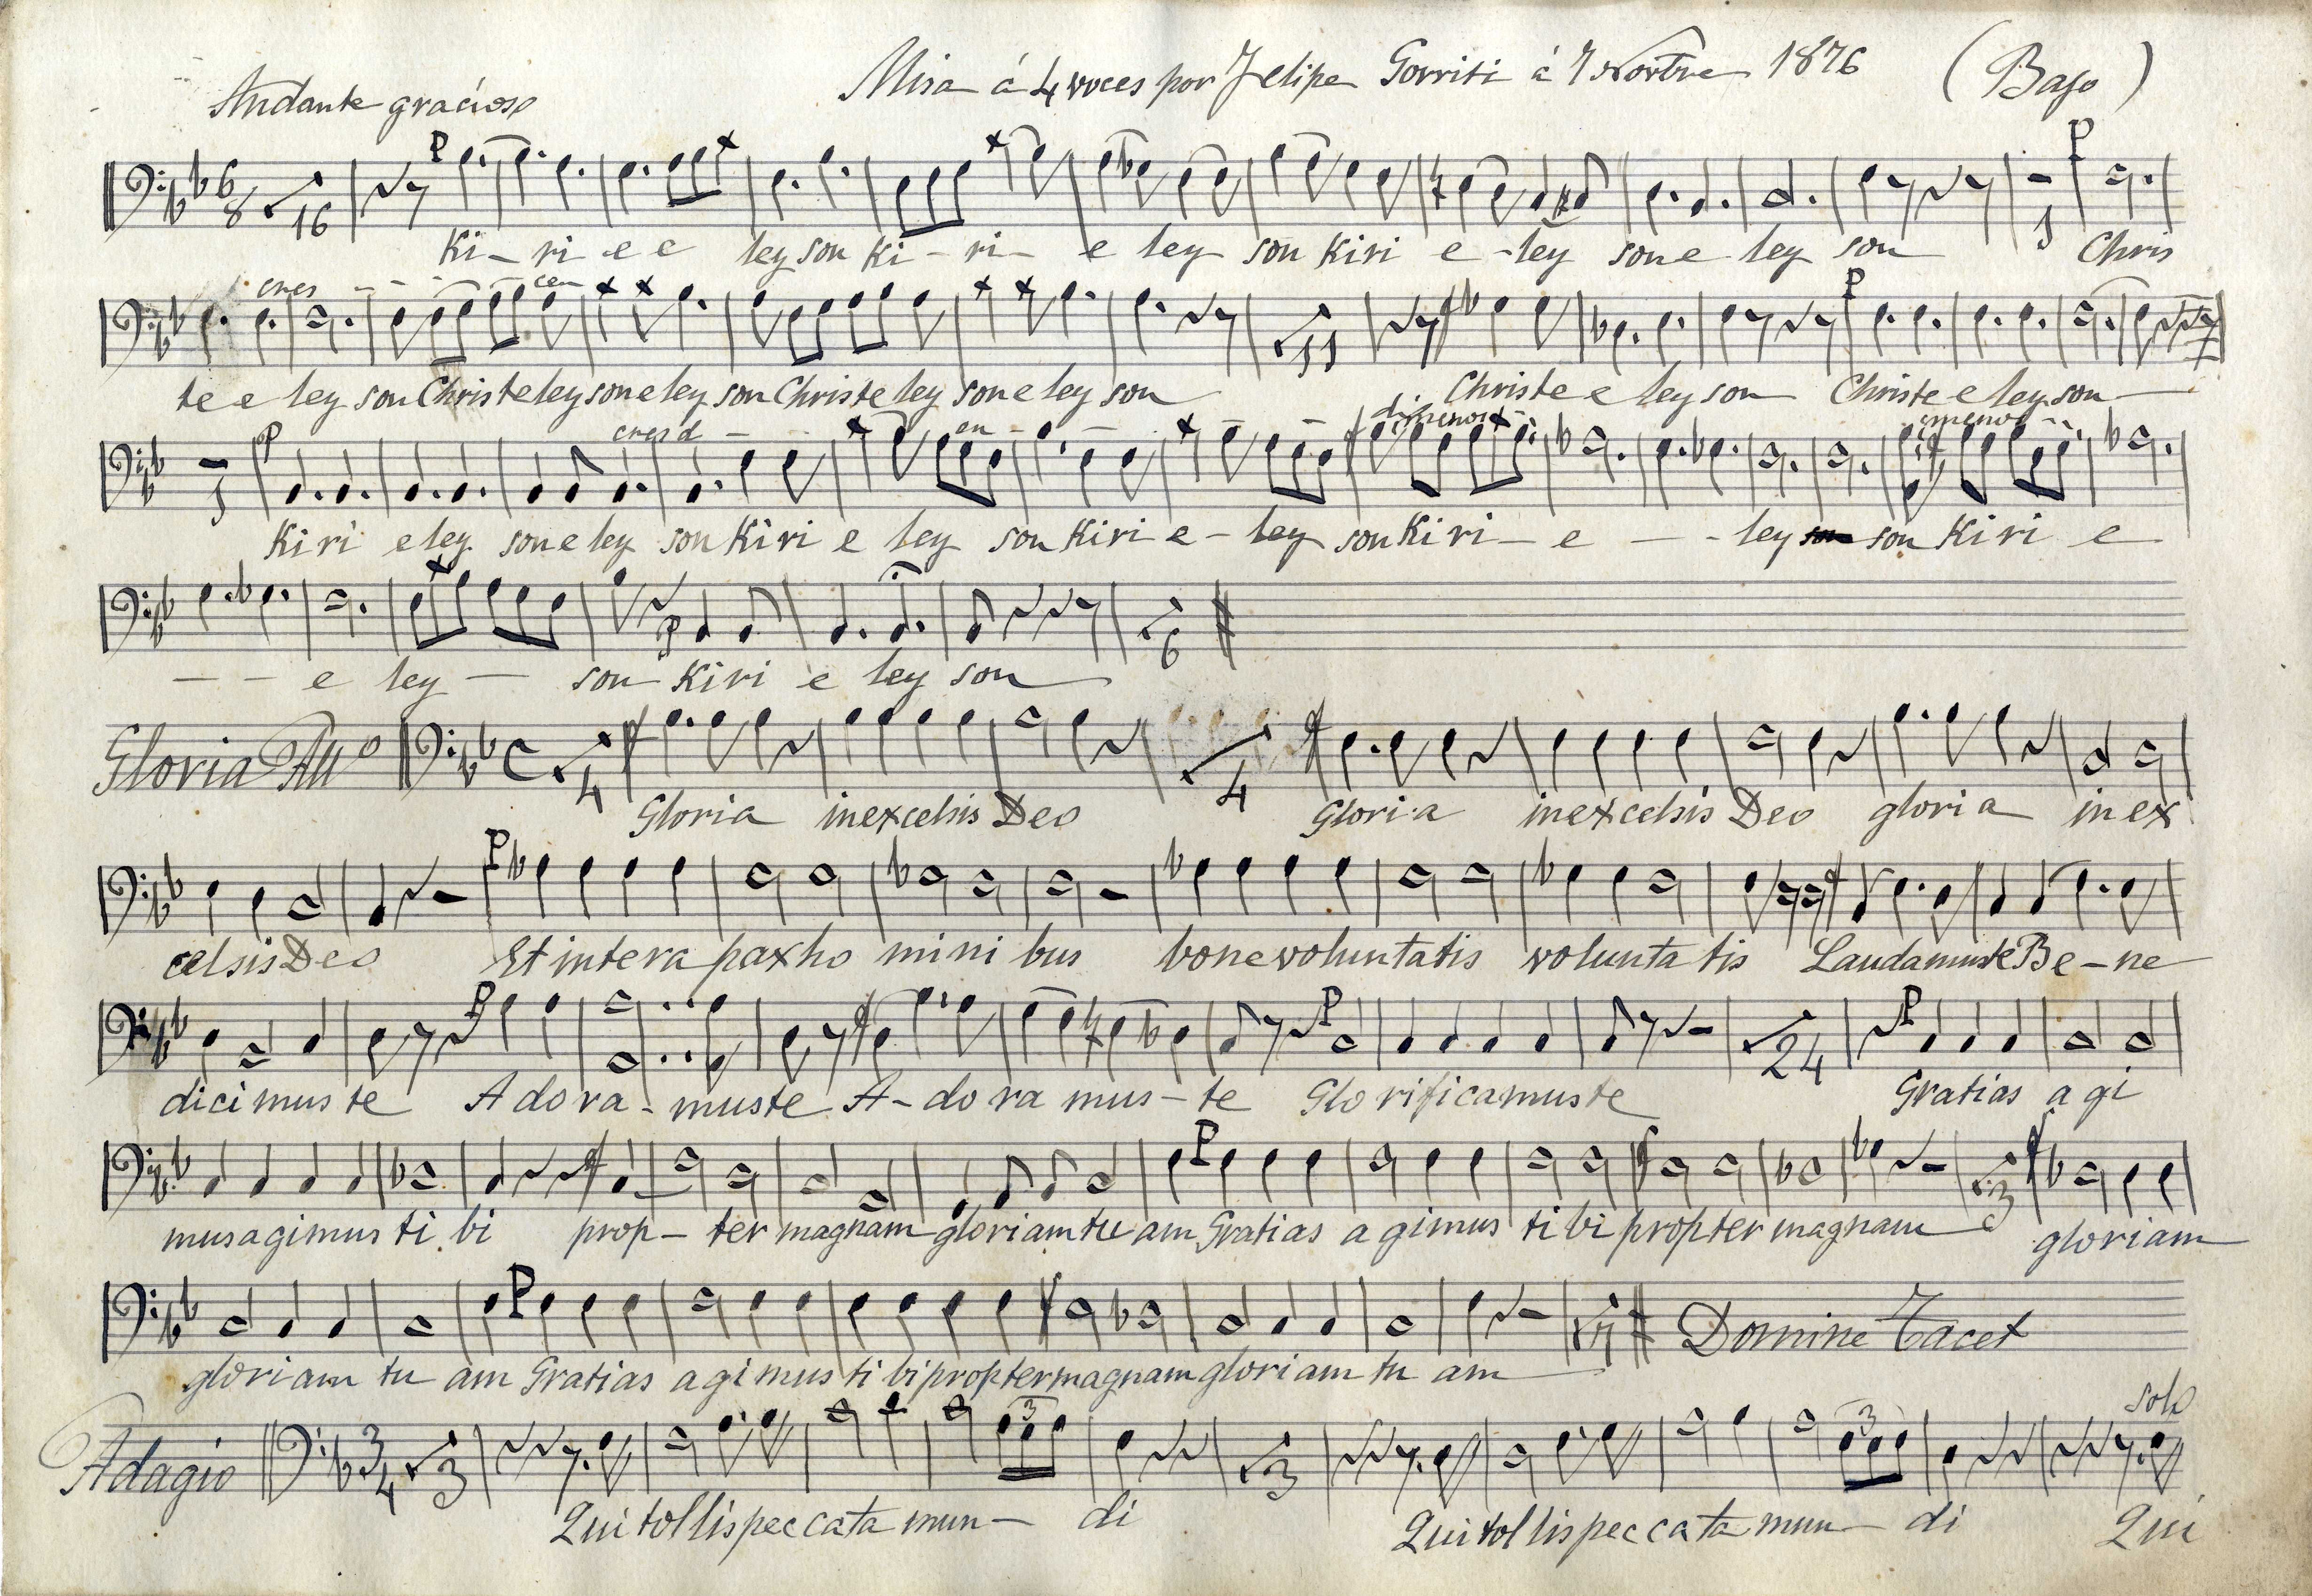 Misa á 4 voces por Felipe Gorriti á 7 1876 (Bajo)
Andante gracioso
P P
6 8 16 1
Ki - ri e e ley son Ki - ri - e ley son Kiri e - ley son e ley son Chris
cres - - - - cen P
11
te e ley son Christe ley son e ley son Christe ley son e ley son Christe e ley son Christe e ley son
P cresd - en - - - dimenos - imenos - -
1
Kiri e ley son e ley son Kiri e ley son Kiri e - ley son Kiri - e - - ley son Kiri e
P
6
- - e ley - son Kiri e ley son
Gloria Allº C 4 4
Gloria in excelsis Deo Gloria in excelsis Deo gloria in ex
P
celsis Deo Et in tera pax ho mini bus bone voluntatis volunta tis Laudamus te Be - ne
P P P
24
dicimus te Adora - mus te A - do ra mus - te Glorificamus te Gratias a gi
P
3
mus agimus ti bi prop - ter magnam gloriam tu am Gratias a gimus ti bi propter magnam gloriam
P
Domine Tacet
gloriam tu am Gratias a gi mus ti bi propter magnam gloriam tu am
solo
Adagio 3 4 3 3 3 3
Qui tollis peccata mun - di Qui tollis peccata mun - di Qui